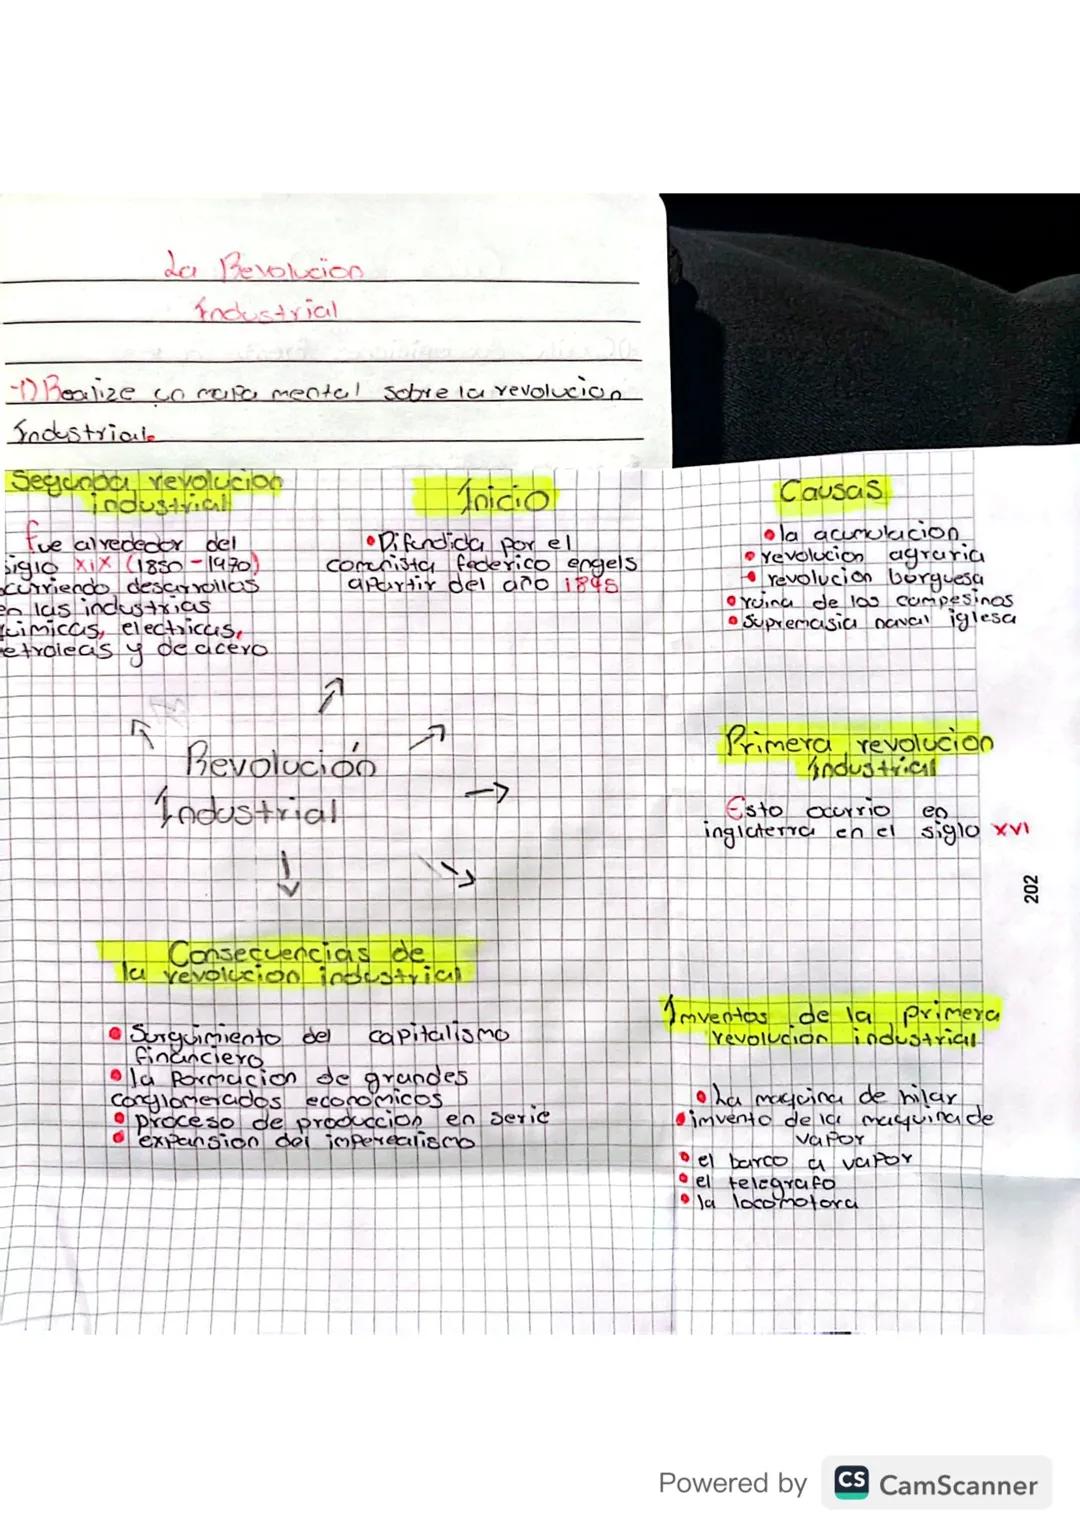 La Revolucion
Industrial
1) Realize un mapa mental sobre la revolucion
Industrial.
Segunda revolucion
industrial
fue alrededor del
siglo XIX (1850-1970)
ocurriendo desarrollas
en las industrias
quimicas, electricas,
petroleas y de acero
Inicio
• Difundida por el
comunista federico engels
apartir del año 1845
Causas
• la acumulacion
• revolucion agraria
• revolucion borguesa
• ruina de los campesinos
• supremasia naval iglesa
Revolución
Industrial
Primera revolucion
industrial
Esto ocurrio en
inglaterra en el siglo XVI
202
Consecuencias de
la revolucion industrial
• Surguimiento del capitalismo
financiero
• la formacion de grandes
conglomerados economicos
• proceso de produccion en serie
• expansion del imperealismo
Inventos de la primera
revolucion industrial
• La maqcina de hilar
• invento de la maquina de
vapor
• el barco a vapor
• el telegrafo
• la locomotora
Powered by CS CamScanner